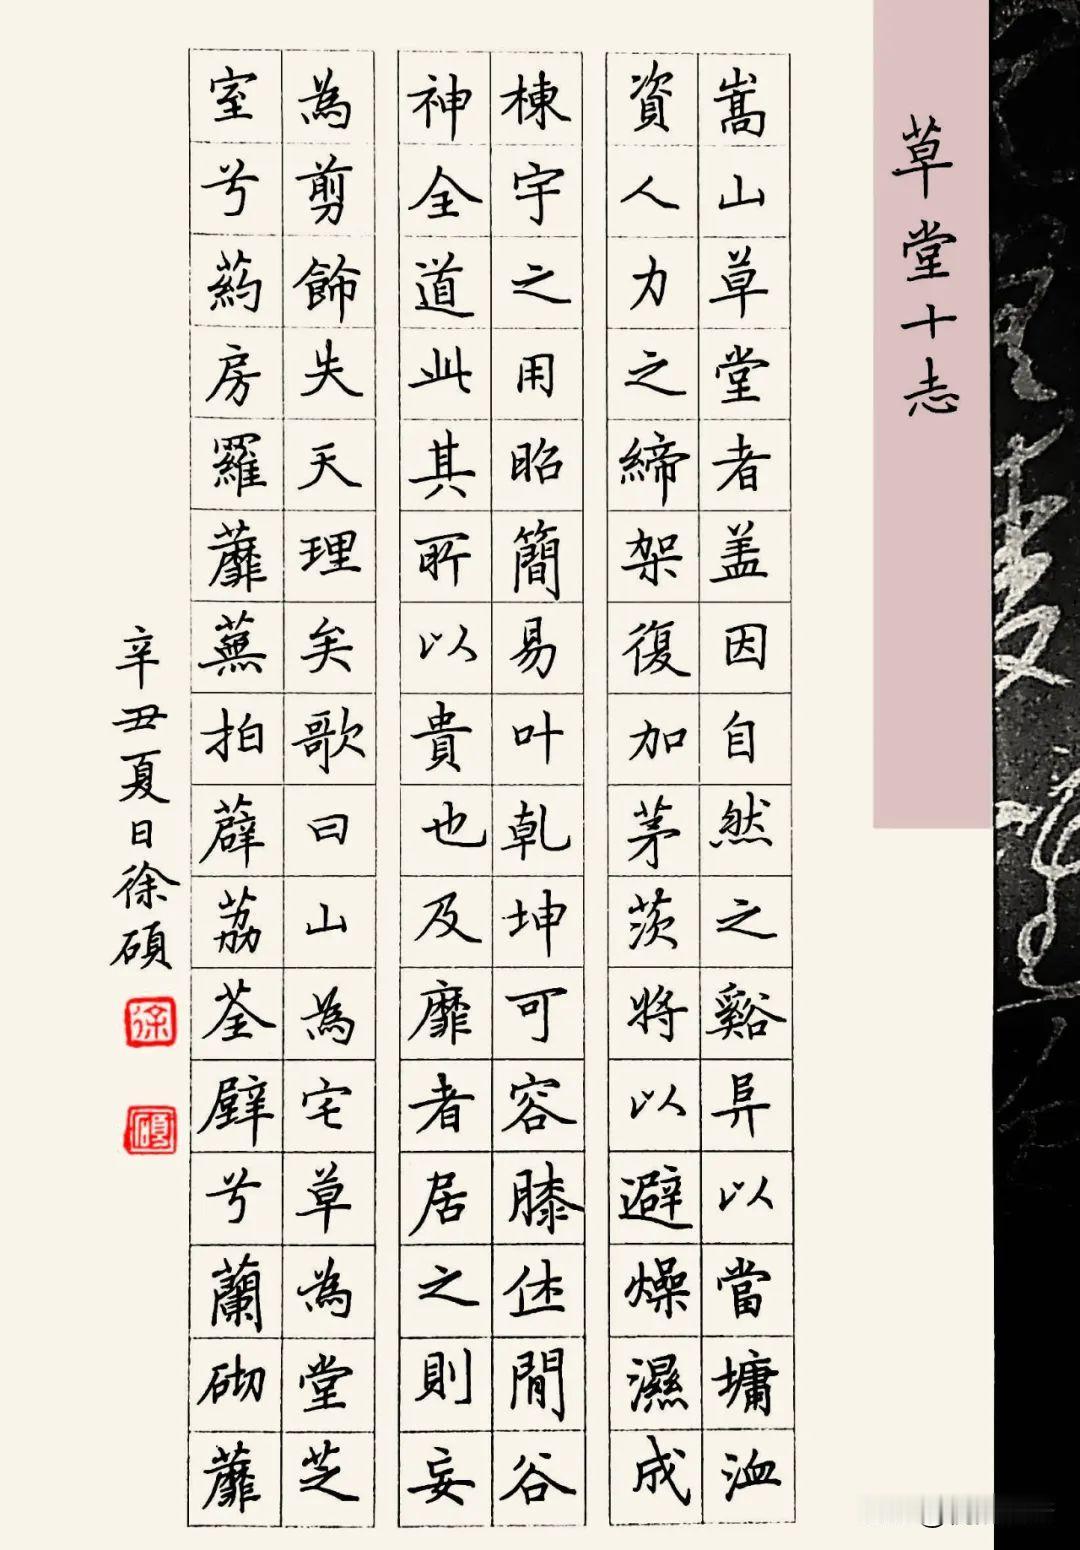 草堂十志
嵩山草堂者盖因自然之谿阜以當墉洫
資人力之締架復加茅茨將以避燥濕成
棟宇之用昭簡易叶乹坤可容膝休閒谷
神全道此其所以貴也及靡者居之則妄
為剪飾失天理矣歌曰山為宅草為堂芝
室兮葯房羅蘼蕪拍薜荔荃壁兮蘭砌蘼
辛丑夏日徐碩
徐
碩